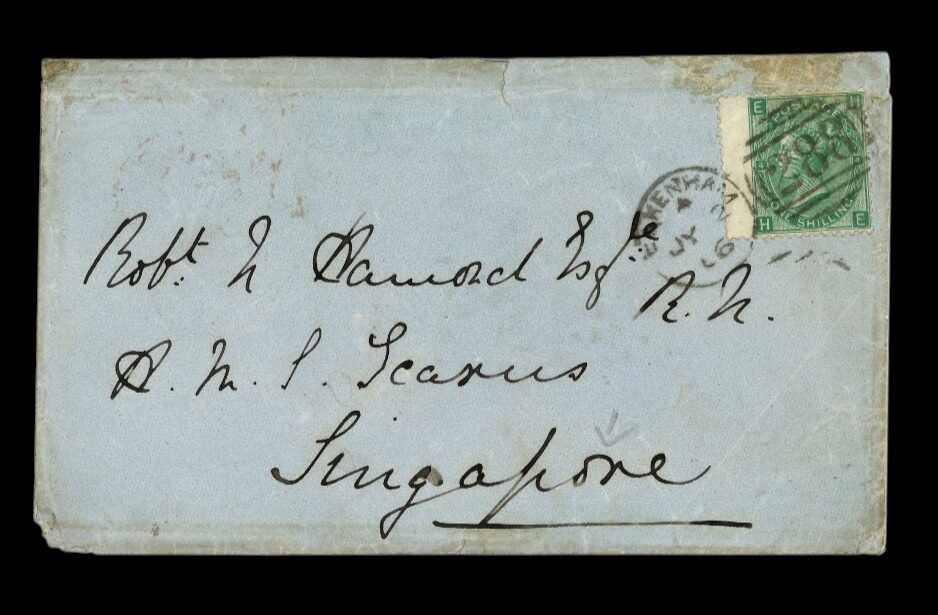 E H
POSTAGE
288
ONE SHILLING
H E
KENHAM
A
JY
Robt. N Hamond Esqre
R. N.
H. M. S. Icarus
Singapore